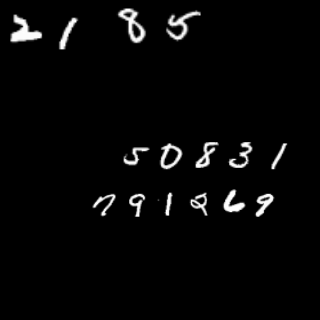 21 85
50831
791269